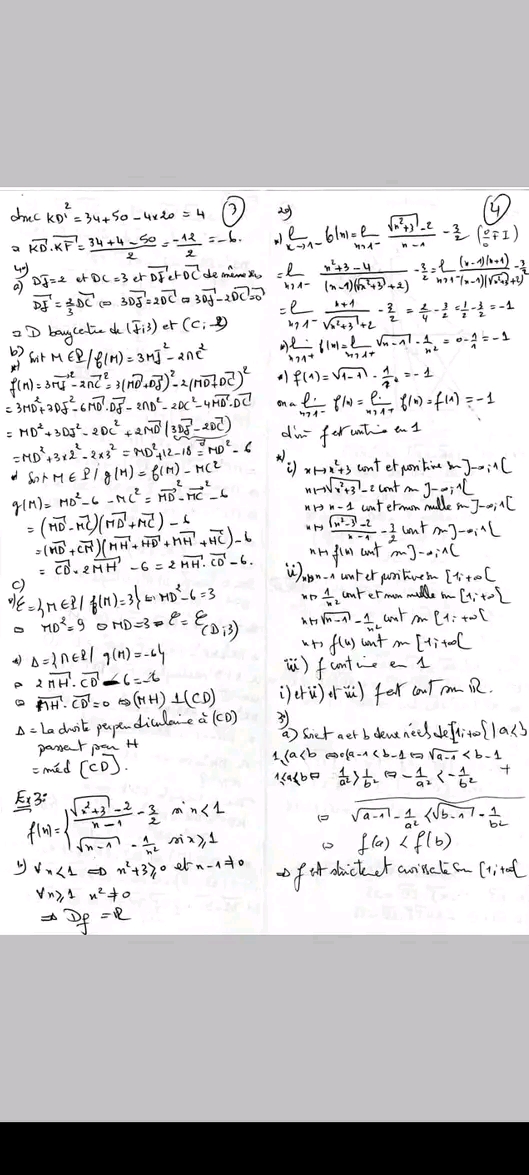 ③
donc KD² = 34+50-4x20 = 4
KD.KF = (34+4-50)/2 = -12/2 = -6.
4)
a) DJ=2 et DC=3 et DJ et DC de même
DJ = 2/3 DC ⇔ 3DJ=2DC ⇔ 3DJ-2DC=0
D barycentre de (J;3) et (C;-2)
b) Soit M∈P / f(M)=3MJ²-2MC²
f(M)=3MJ²-2MC²=3(MD+DJ)²-2(MD+DC)²
=MD²+3DJ²-2DC²+2MD(3DJ-2DC)
=MD²+3x2²-2x3²=MD²+12-18=MD²-6
Soit M∈P / g(M)=f(M)-MC²
g(M)=MD²-6-MC²=MD²-MC²-6
=(MD-MC)(MD+MC)-6
=(MD+CM)(MH+HD+MH+HC)-6
=CD.2MH-6=2MH.CD-6.
c)
ℰ={M∈P/f(M)=3} ⇔ MD²-6=3
⇔ MD²=9 ⇔ MD=3 ⇔ ℰ=ℰ(D;3)
Δ={M∈P/g(M)=-6}
⇔ 2MH.CD-6=-6
⇔ MH.CD=0 ⇔ (MH)⊥(CD)
Δ=La droite perpendiculaire à (CD)
passant par H
=méd [CD].
Ex3:
f(x)= { (√(x²+3)-2)/(x-1) - 3/2 si x<1
√(x-1) - 1/x² si x≥1
∀x<1 ⇒ x²+3≥0 et x-1≠0
∀x≥1 x²≠0
⇒ Df=ℝ
④
2)
lim x→1⁻ f(x)=lim x→1⁻ (√(x²+3)-2)/(x-1) - 3/2 (0/0 FI)
=lim x→1⁻ (x²+3-4)/((x-1)(√(x²+3)+2)) - 3/2 = lim x→1⁻ (x-1)(x+1)/((x-1)(√(x²+3)+2)) - 3/2
=lim x→1⁻ (x+1)/(√(x²+3)+2) - 3/2 = 2/4 - 3/2 = 1/2 - 3/2 = -1
lim x→1⁺ f(x)=lim x→1⁺ √(x-1) - 1/x² = 0 - 1/1 = -1
f(1)=√(1-1) - 1/1² = -1
on a lim x→1⁻ f(x)=lim x→1⁺ f(x)=f(1)=-1
d'où f est continue en 1
i) x↦x²+3 cont et positive sur ]-∞,1[
x↦√(x²+3)-2 cont sur ]-∞,1[
x↦x-1 cont et non nulle sur ]-∞,1[
x↦(√(x²+3)-2)/(x-1) - 3/2 cont sur ]-∞,1[
x↦f(x) cont sur ]-∞,1[
ii) x↦x-1 cont et positive sur [1,+∞[
x↦1/x² cont et non nulle sur [1,+∞[
x↦√(x-1) - 1/x² cont sur [1,+∞[
x↦f(x) cont sur [1,+∞[
iii) f continue en 1
i) et ii) et iii) f est cont sur ℝ.
3)
a) Soient a et b deux réels de [1,+∞[ | a<b
1≤a<b ⇔ 0≤a-1<b-1 ⇔ √(a-1)<b-1
1≤a<b ⇔ 1/a²>1/b² ⇔ -1/a²<-1/b² +
⇔ √(a-1) - 1/a² < √(b-1) - 1/b²
⇔ f(a)<f(b)
⇒ f est strictement croissante sur [1,+∞[